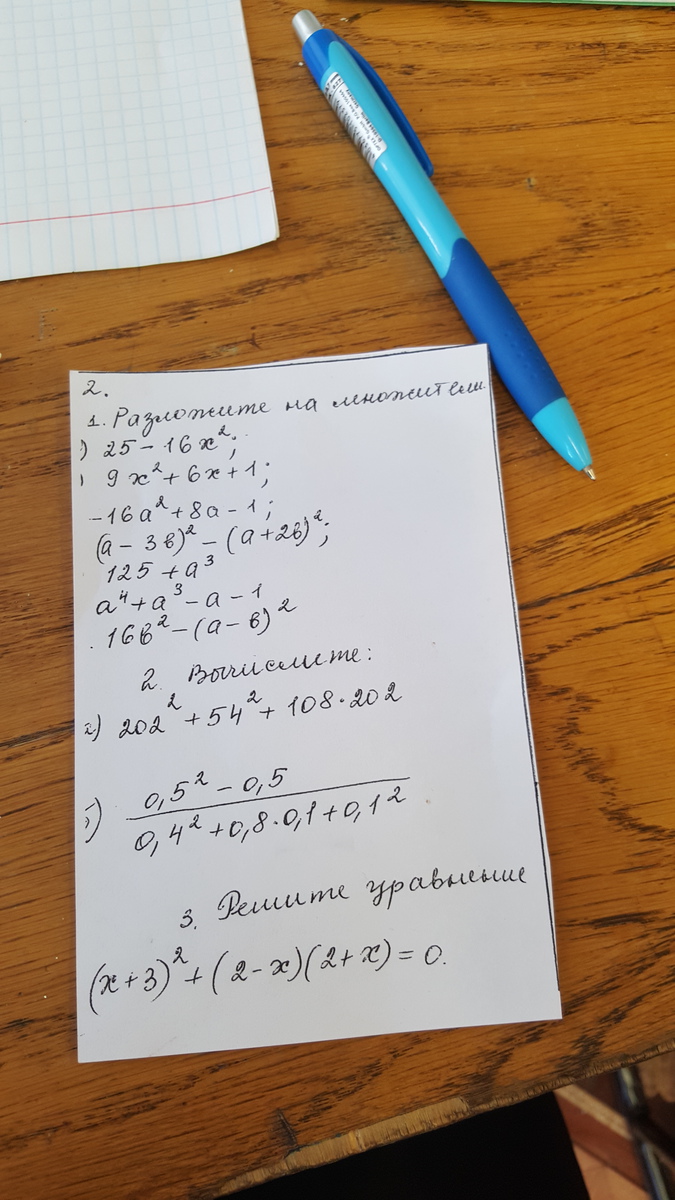 2.
1. Разложите на множители
) 25 - 16x²;
) 9x² + 6x + 1;
-16a² + 8a - 1;
(a - 3b)² - (a + 2b)²;
125 + a³
a⁴ + a³ - a - 1
16b² - (a - b)²
2. Вычислите:
a) 202² + 54² + 108 · 202
0,5² - 0,5
0,4² + 0,8 · 0,1 + 0,1²
3. Решите уравнение
(x + 3)² + (2 - x)(2 + x) = 0.